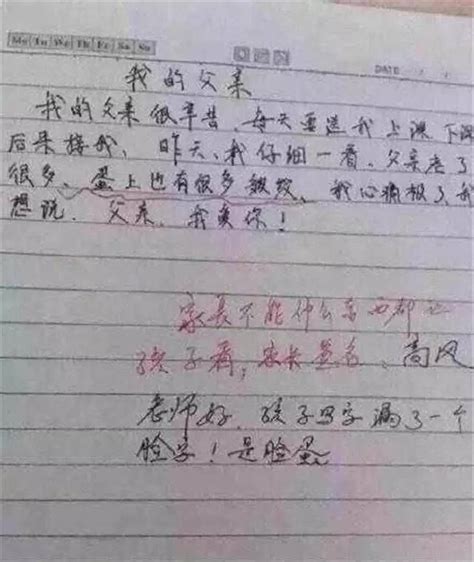 Mo Tu We Th Fr Sa Su
DATE / /
我的父亲
我的父亲很辛苦、每天要送我上课下课
后来接我、昨天、我仔细一看、父亲老了
很多、蛋上也有很多皱纹、我心痛极了我
想说、父亲、我爱你!
家长不能什么东西都让
孩子看,家长签名、高风
老师好、孩子写字漏了一个
脸字!是脸蛋